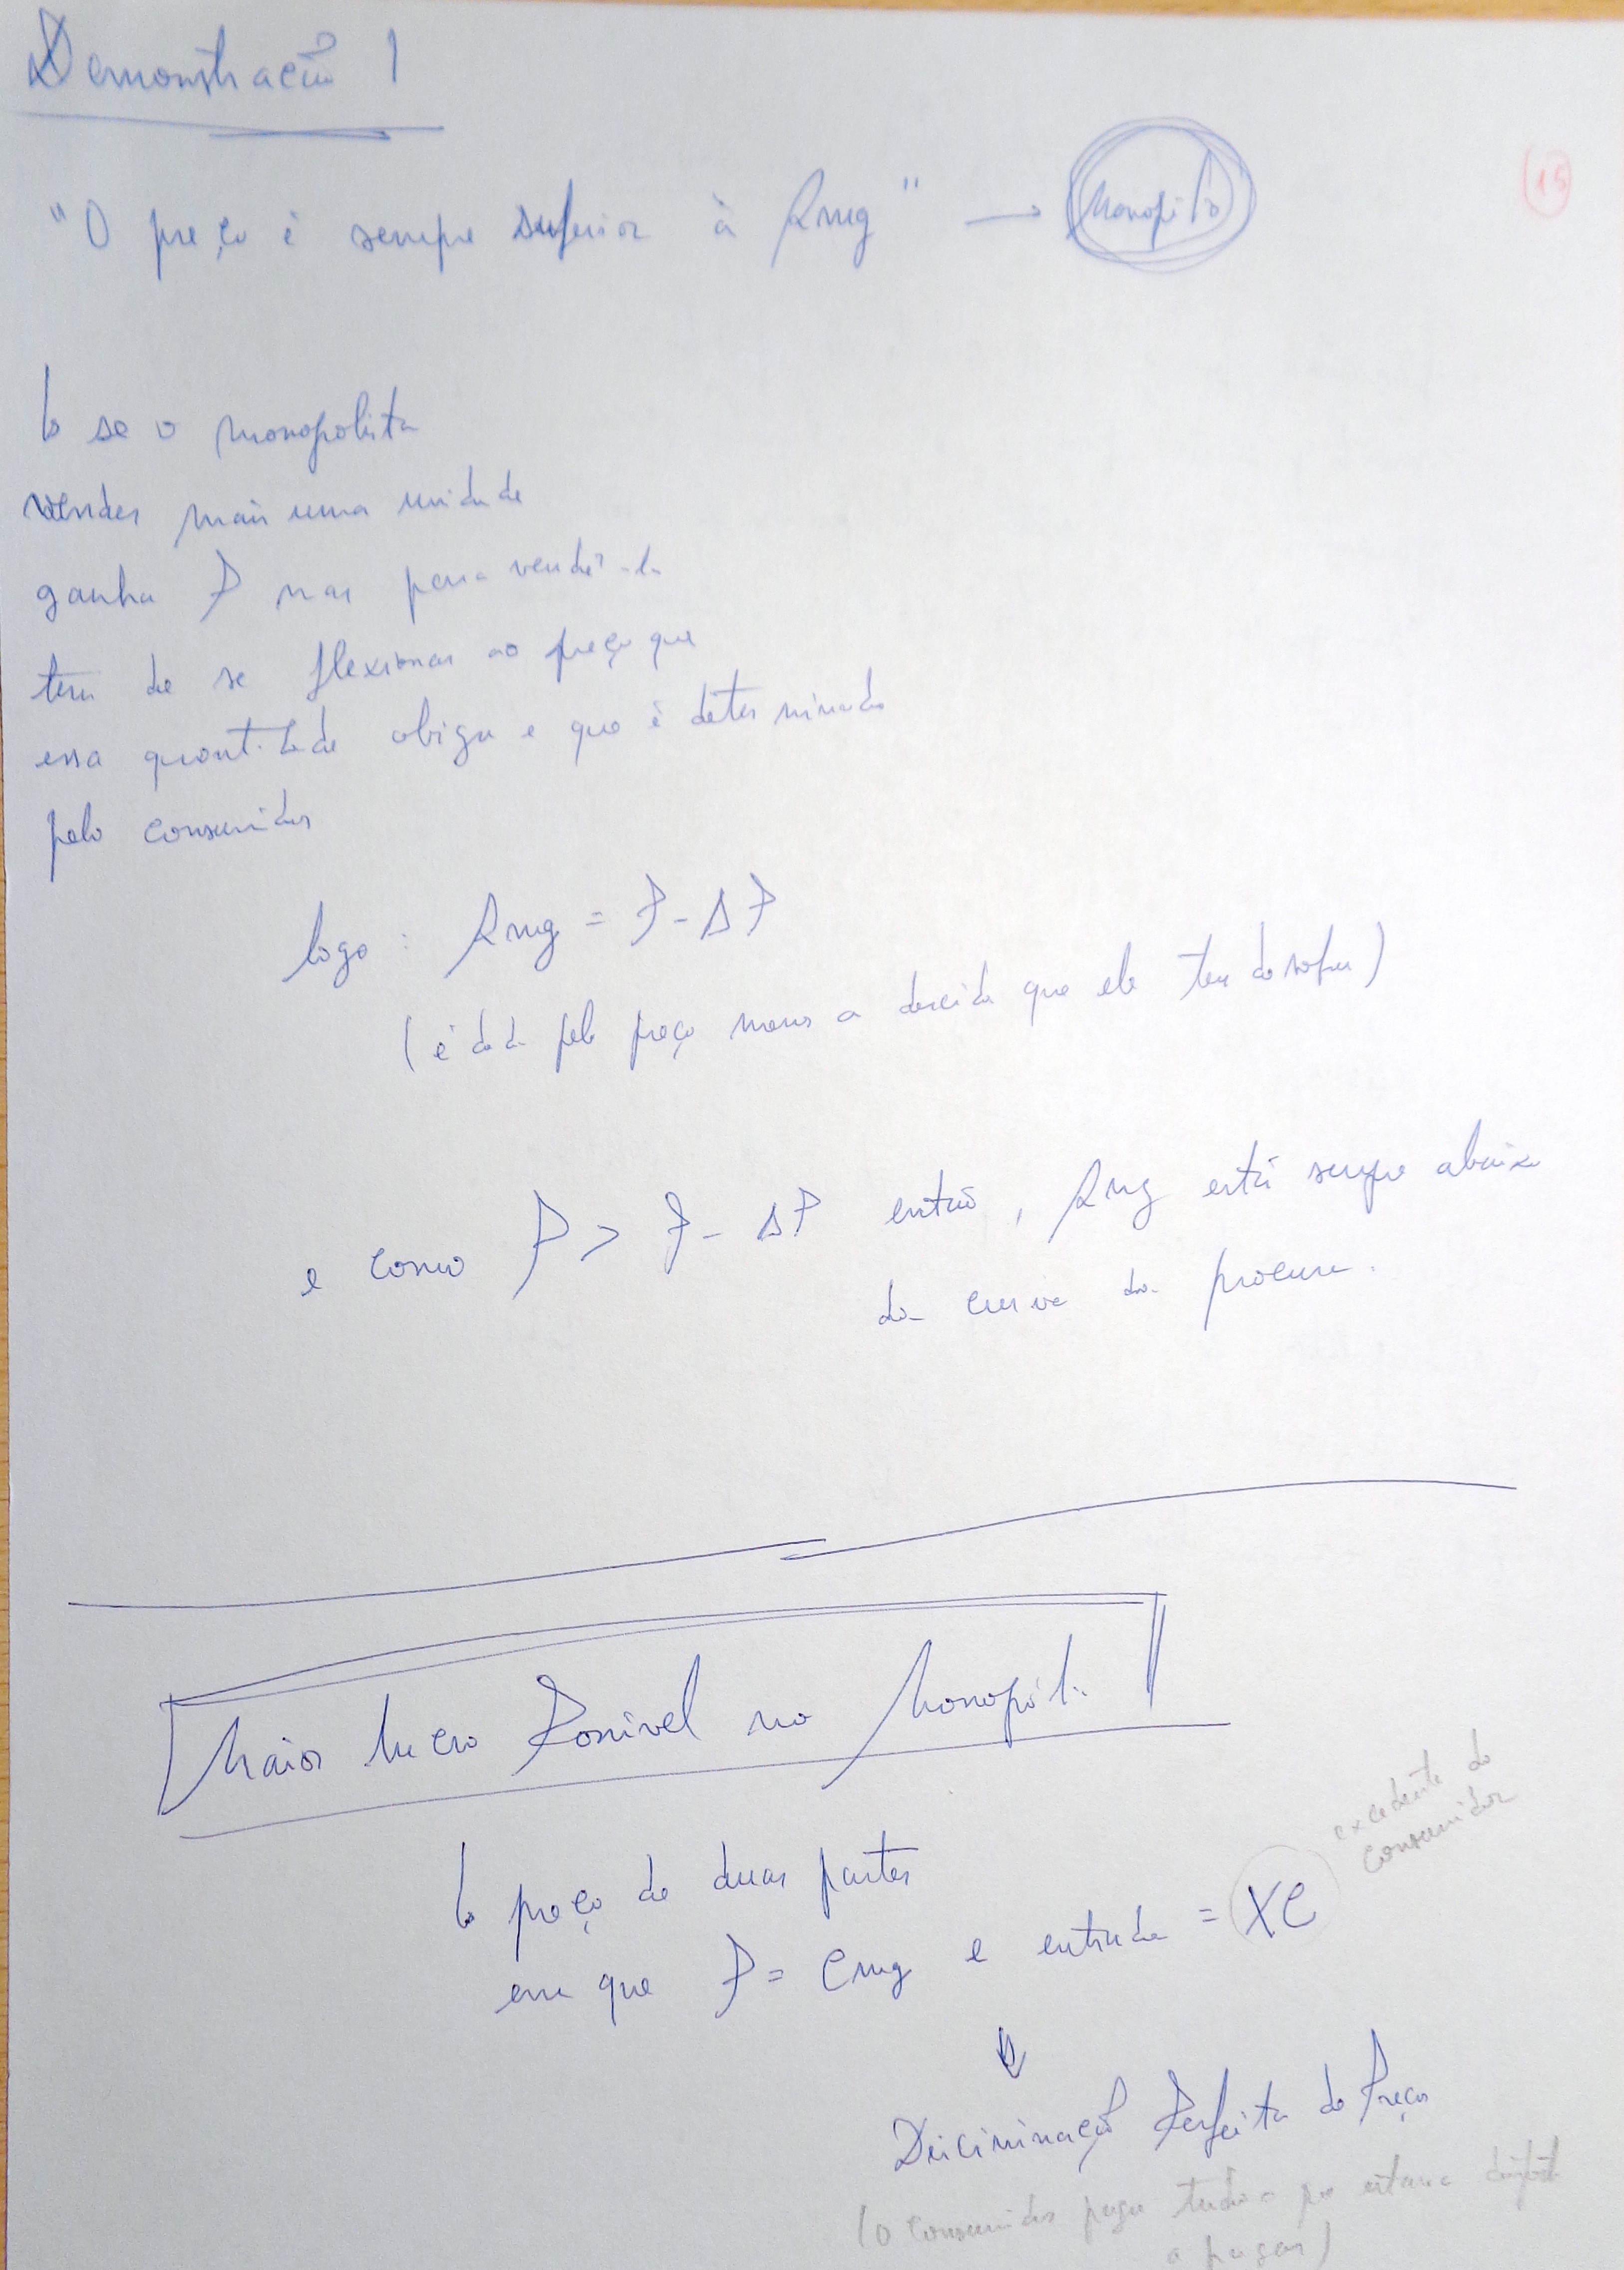 Demonstração 1
"O preço é sempre superior à Rmg" → Monopólio
(15)
↳ se o monopolista
vender mais uma unidade
ganha P mas para vendê-la
tem de se flexionar ao preço que
essa quantidade obriga e que é determinado
pelo consumidor
logo : Rmg = P - ΔP
(é dada pelo preço menos a descida que ele tem de sofrer)
e como P > P - ΔP então, Rmg está sempre abaixo
da curva da procura.
Maior lucro Possível no Monopólio
excedente do
consumidor
↳ preço de duas partes
em que P = Cmg e entrada = XC
↓
Disciminação Perfeita de Preços
(o consumidor paga tudo o que estava disposto
a pagar)